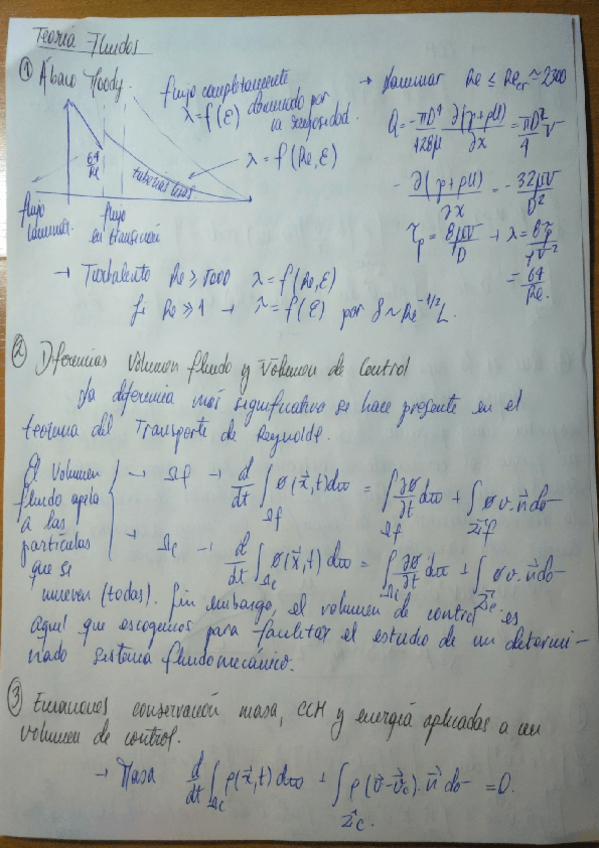 Teoría Fluidos
① Ábaco Moody.
flujo completamente dominado por la rugosidad.
λ = f(ε)
λ = f(Re, ε)
64/Re
tuberías lisas
flujo laminar
flujo en transición
→ Laminar Re ≤ Recr ≈ 2300
Q = -πD⁴/128μ ∂(p+ρU)/∂x = πD²/4 v
- ∂(p+ρU)/∂x = - 32μv/D²
τp = 8μv/D → λ = 8τp/ρv²
= 64/Re.
→ Turbulento Re ≥ 5000 λ = f(Re, ε)
Si Re ≫ 1 → λ = f(ε) por δ ~ Re^(-1/2) L.
② Diferencias Volumen fluido y Volumen de Control
La diferencia más significativa se hace presente en el
teorema del Transporte de Reynolds.
El Volumen
fluido
a las
partículas
que se
→ Ωf → d/dt ∫Ωf φ(x⃗,t)dω = ∫Ωf ∂φ/∂t dω + ∫Σf φ v·n⃗ dσ
→ Ωc → d/dt ∫Ωc φ(x⃗,t)dω = ∫Ωc ∂φ/∂t dω + ∫Σc φ v·n⃗ dσ
mueven (todas). Sin embargo, el volumen de control es
aquel que escogemos para facilitar el estudio de un determi-
nado sistema fluidomecánico.
③ Ecuaciones conservación masa, CCM y energía aplicadas a un
volumen de control.
→ Masa d/dt ∫Ωc ρ(x⃗,t)dω + ∫Σc ρ(v⃗-v⃗c)·n⃗ dσ = 0.